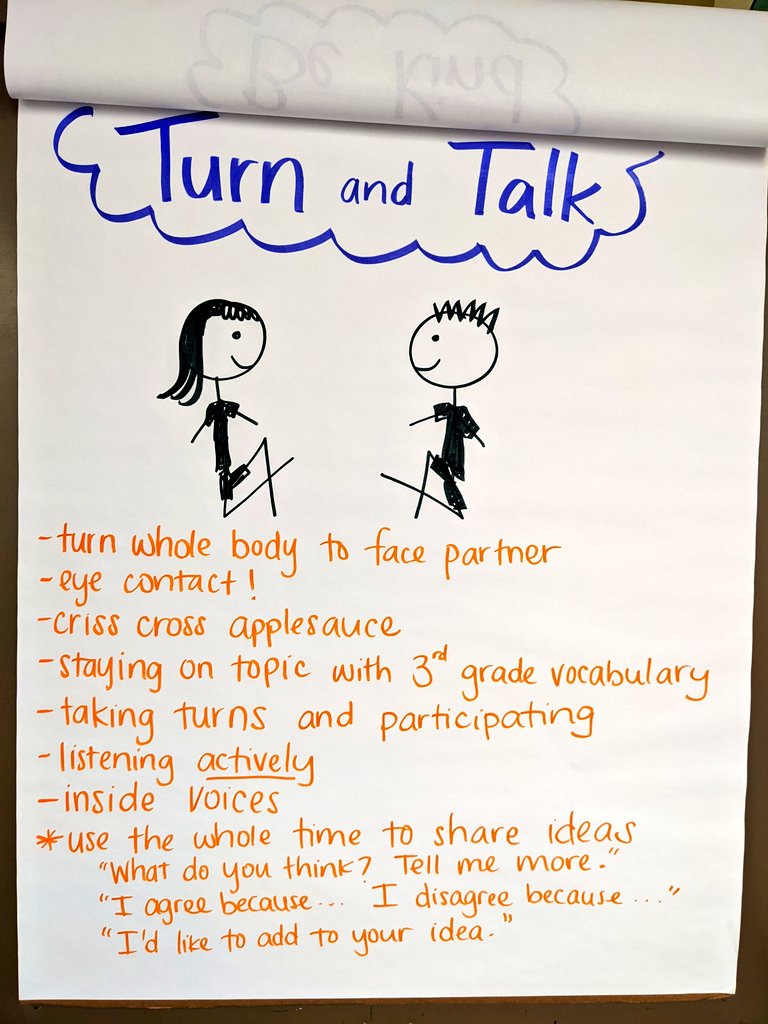 Be Kind
Turn and Talk
-turn whole body to face partner
-eye contact!
-criss cross applesauce
-staying on topic with 3rd grade vocabulary
-taking turns and participating
-listening actively
-inside voices
*use the whole time to share ideas
"What do you think? Tell me more."
"I agree because... I disagree because..."
"I'd like to add to your idea."